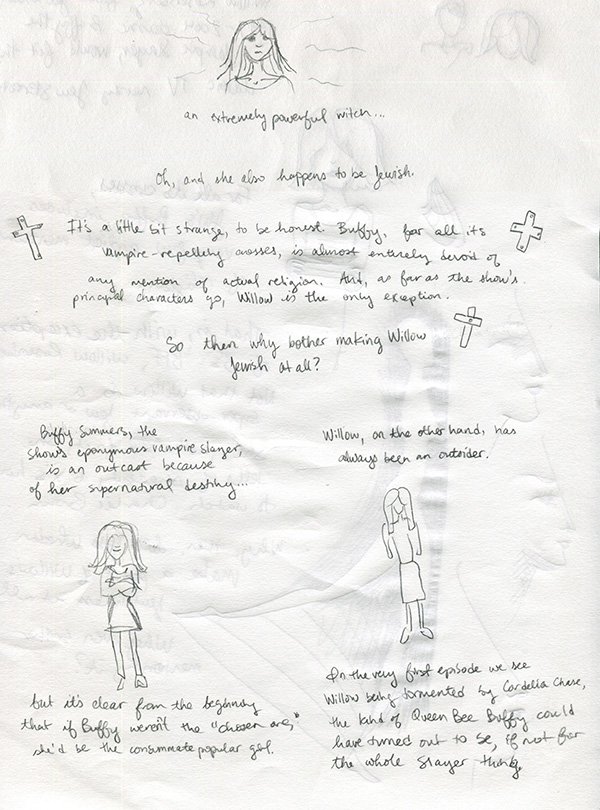 an extremely powerful witch...
Oh, and she also happens to be Jewish.
It's a little bit strange, to be honest. Buffy, for all its
vampire-repelling crosses, is almost entirely devoid of
any mention of actual religion. And, as far as the show's
principal characters go, Willow is the only exception.
So then why bother making Willow
Jewish at all?
Buffy Summers, the
show's eponymous vampire slayer,
is an outcast because
of her supernatural destiny...
but it's clear from the beginning
that if Buffy weren't the "chosen one,"
she'd be the consummate popular girl.
Willow, on the other hand, has
always been an outsider.
In the very first episode we see
Willow being tormented by Cordelia Chase,
the kind of Queen Bee Buffy could
have turned out to be, if not for
the whole slayer thing.